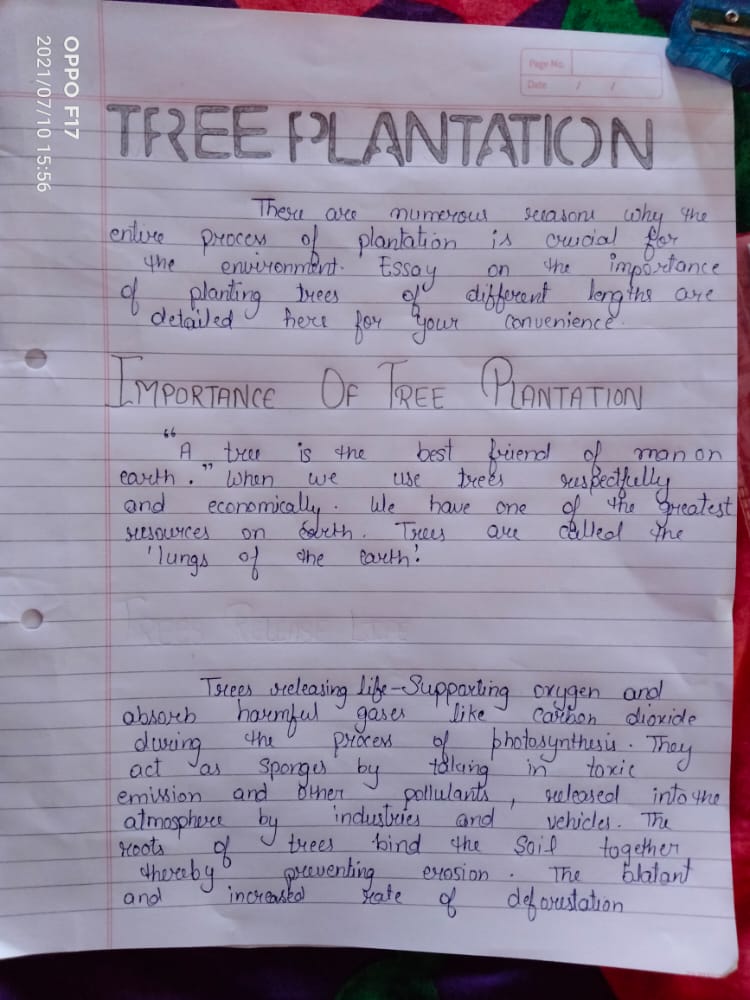 OPPO F17
2021/07/10 15:56
Page No.
Date / /
TREE PLANTATION
There are numerous reasons why the
entire process of plantation is crucial for
the environment. Essay on the importance
of planting trees of different lengths are
detailed here for your convenience.
IMPORTANCE OF TREE PLANTATION
"A tree is the best friend of man on
earth." When we use trees respectfully
and economically. We have one of the greatest
resources on Earth. Trees are called the
'lungs of the earth'.
TREES RELEASE LIFE
Trees releasing life-Supporting oxygen and
absorb harmful gases like carbon dioxide
during the process of photosynthesis. They
act as sponges by taking in toxic
emission and other pollutants, released into the
atmosphere by industries and vehicles. The
roots of trees bind the soil together
thereby preventing erosion. The blatant
and increased rate of deforestation